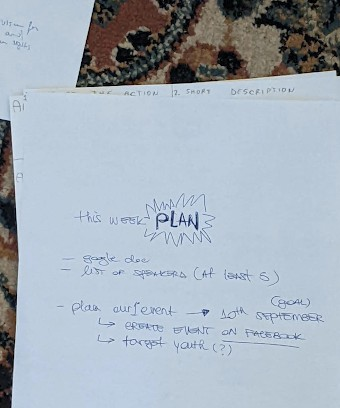 and
THE ACTION 2. SHORT DESCRIPTION
this WEEK PLAN
- google doc
- LIST OF SPEAKERS (At least 5)
- plan our event → 10th SEPTEMBER
(GOAL)
↳ CREATE EVENT ON FACEBOOK
↳ target youth (?)